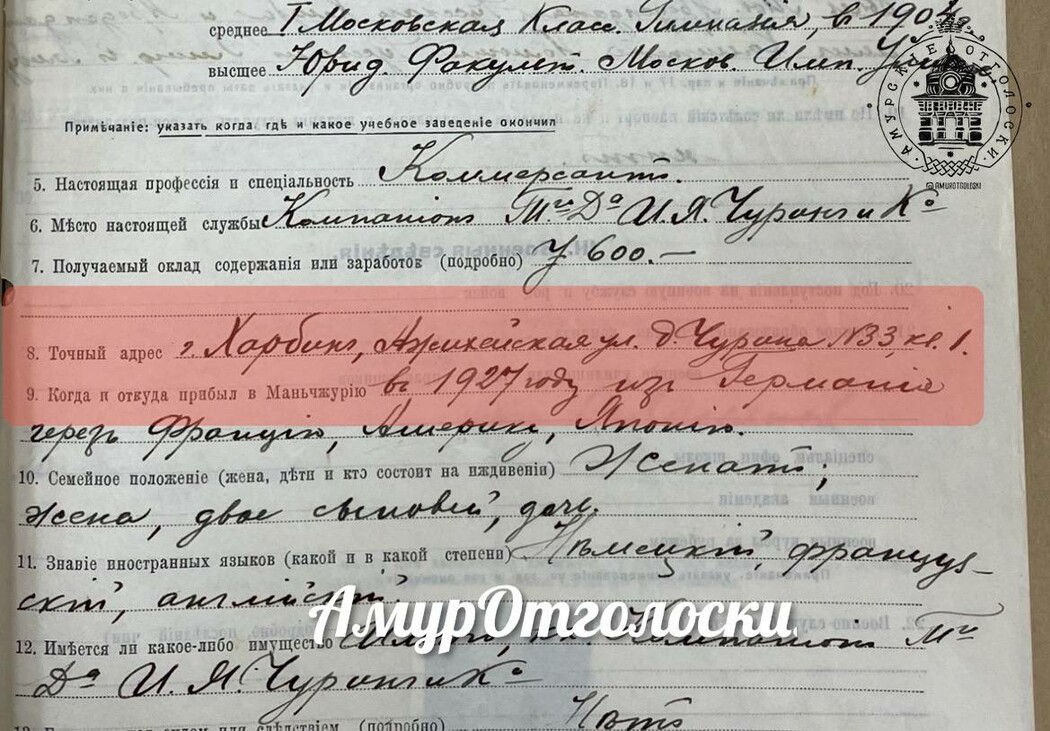 среднее I Московская Класс. Гимназія, в 1904 г.
высшее Юрид. Факульт. Москов. Имп. Унив.
Примѣчаніе: указать когда гдѣ и какое учебное заведеніе окончил
5. Настоящая профессія и спеціальность Коммерсантъ.
6. Мѣсто настоящей службы Компаніонъ Т-ва Д-а И. Я. Чуринъ и К-о
7. Получаемый оклад содержанія или заработок (подробно) 600.—
8. Точный адрес г. Харбинъ, Ажихейская ул. д. Чурина N33, кв. 1.
9. Когда и откуда прибыл в Маньчжурію въ 1927 году изъ Германіи
черезъ Францію, Америку, Японію.
10. Семейное положеніе (жена, дѣти и кто состоит на иждивеніи) Женатъ;
жена, двое сыновей, дочь.
11. Знаніе иностранных языков (какой и в какой степени) Нѣмецкій, француз-
скій, англійскій.
АмурОтголоски
12. Имѣется ли какое-либо имущество Компаніонъ Т-ва
Д-а И. Я. Чуринъ и К-о
(подробно) Нѣтъ
АМУРСКИЕ ОТГОЛОСКИ
@AMUROTGOLOSKI